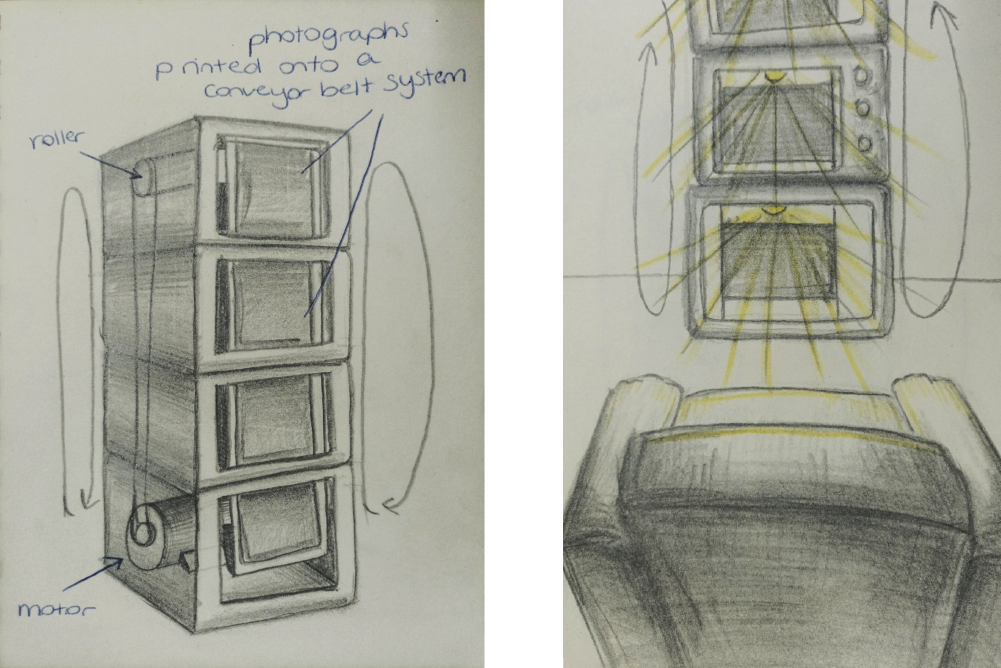 photographs
printed onto a
conveyor belt system
roller
motor